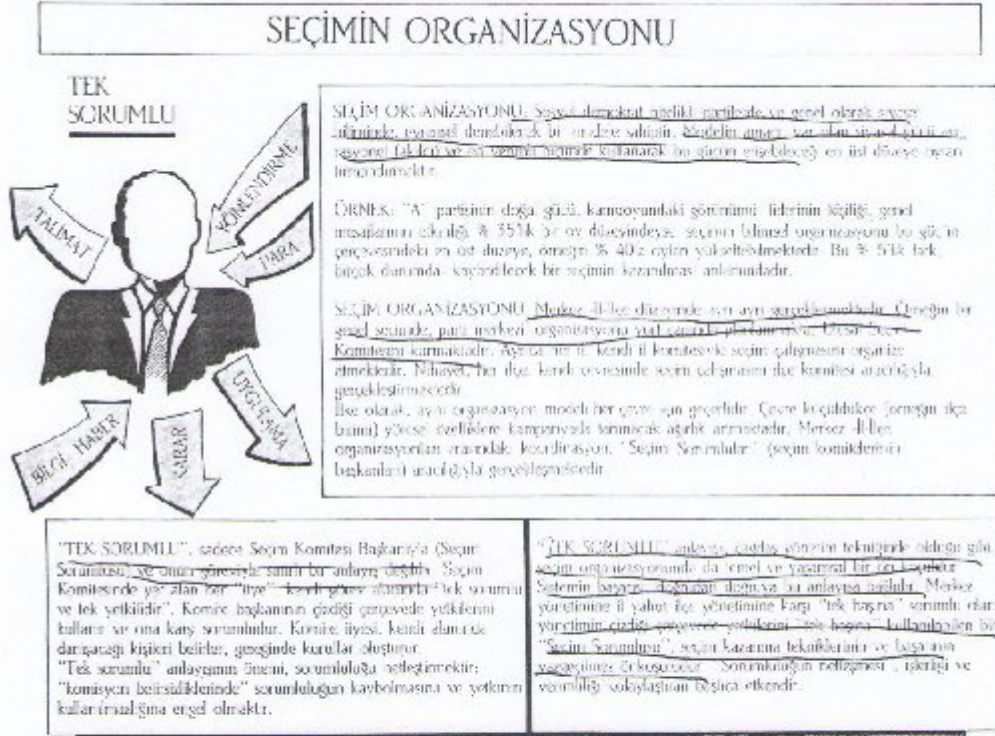 SEÇİMİN ORGANİZASYONU
TEK
SORUMLU
TALİMAT
YÖNLENDİRME
PARA
BİLGİ HABER
KARAR
UYGULAMA
SEÇİM ORGANİZASYONU, Sosyal demokrat nitelikli partilerde ve genel olarak siyaset
biliminde, evrensel denebilecek bir modele sahiptir. Modelin amacı, var olan siyasal gücü en
rasyonel (akılcı) ve en verimli biçimde kullanarak bu gücün erişebileceği en üst düzeye oyları
tırmandırmaktır.
ÖRNEK: "A" partisinin doğal gücü, kamuoyundaki görünümü liderinin kişiliği, genel
mesajlarının etkinliği % 35'lik bir oy düzeyindeyse seçimin bilimsel organizasyonu bu gücün
çerçevesindeki en üst düzeye, örneğin % 40'a oyları yükseltebilmektedir. Bu % 5'lik fark,
birçok durumda kaybedilecek bir seçimin kazanılması anlamındadır.
SEÇİM ORGANİZASYONU, Merkez-İl-İlçe düzeyinde ayrı ayrı gerçekleşmektedir. Örneğin bir
genel seçimde, parti merkezi organizasyonu yurt çapında planlamakta, Ulusal Seçim
Komitesini kurmaktadır. Ayrıca her il, kendi il komitesiyle seçim çalışmasını organize
etmektedir. Nihayet, her ilçe kendi çevresinde seçim çalışmasını ilçe komitesi aracılığıyla
gerçekleştirmektedir.
İlke olarak, aynı organizasyon modeli her çevre için geçerlidir. Çevre küçüldükçe (örneğin ilçe
birimi) yöresel özelliklere kampanyada tanınacak ağırlık artmaktadır. Merkez-İl-İlçe
organizasyonları arasındaki koordinasyon, "Seçim Sorumluları" (seçim komitelerinin
başkanları) aracılığıyla gerçekleşmektedir.
"TEK SORUMLU", sadece Seçim Komitesi Başkanı'yla (Seçim
Sorumlusu) ve onun göreviyle sınırlı bir anlayış değildir. Seçim
Komitesinde yer alan her "üye" kendi görev alanında "tek sorumlu
ve tek yetkilidir". Komite başkanının çizdiği çerçevede yetkilerini
kullanır ve ona karşı sorumludur. Komite üyesi, kendi alanında
danışacağı kişileri belirler, gereğinde kurullar oluşturur.
"Tek sorumlu" anlayışının önemi, sorumluluğu netleştirmektir;
"komisyon belirsizliklerinde" sorumluluğun kaybolmasına ve yetkinin
kullanılmazlığına engel olmaktır.
"TEK SORUMLU" anlayışı, çağdaş yönetim tekniğinde olduğu gibi,
seçim organizasyonunda da temel ve yaşamsal bir ön koşuldur.
Sistemin başarısı doğrudan doğruya bu anlayışa bağlıdır. Merkez
yönetimine il yahut ilçe yönetimine karşı "tek başına" sorumlu olan
yönetimin çizdiği çerçevede yetkilerini "tek başına" kullanabilen bir
"Seçim Sorumlusu", seçim kazanma tekniklerinin ve başarının
vazgeçilmez önkoşuludur. "Sorumluluğun netleşmesi", işlerliği ve
verimliliği kolaylaştıran başlıca etkendir.